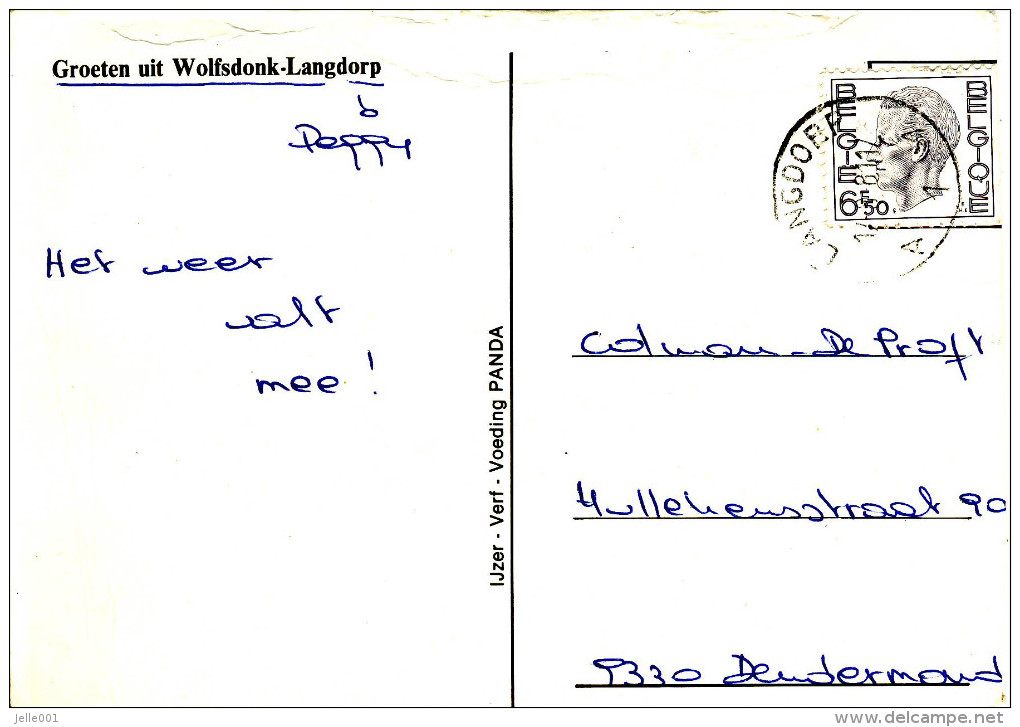 Groeten uit Wolfsdonk-Langdorp
Peggy
Het weer
valt
mee !
IJzer - Verf - Voeding PANDA
BELGIE
6F50
BELGIQUE
LANGDORP
A
1
Colman - De Proft
Hullekensstraat 90
9330 Dendermond
jelle001
delcampe.net